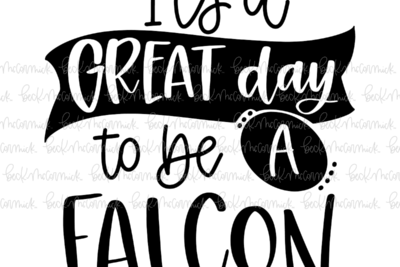 It's a
GREAT day
to be A
FALCON